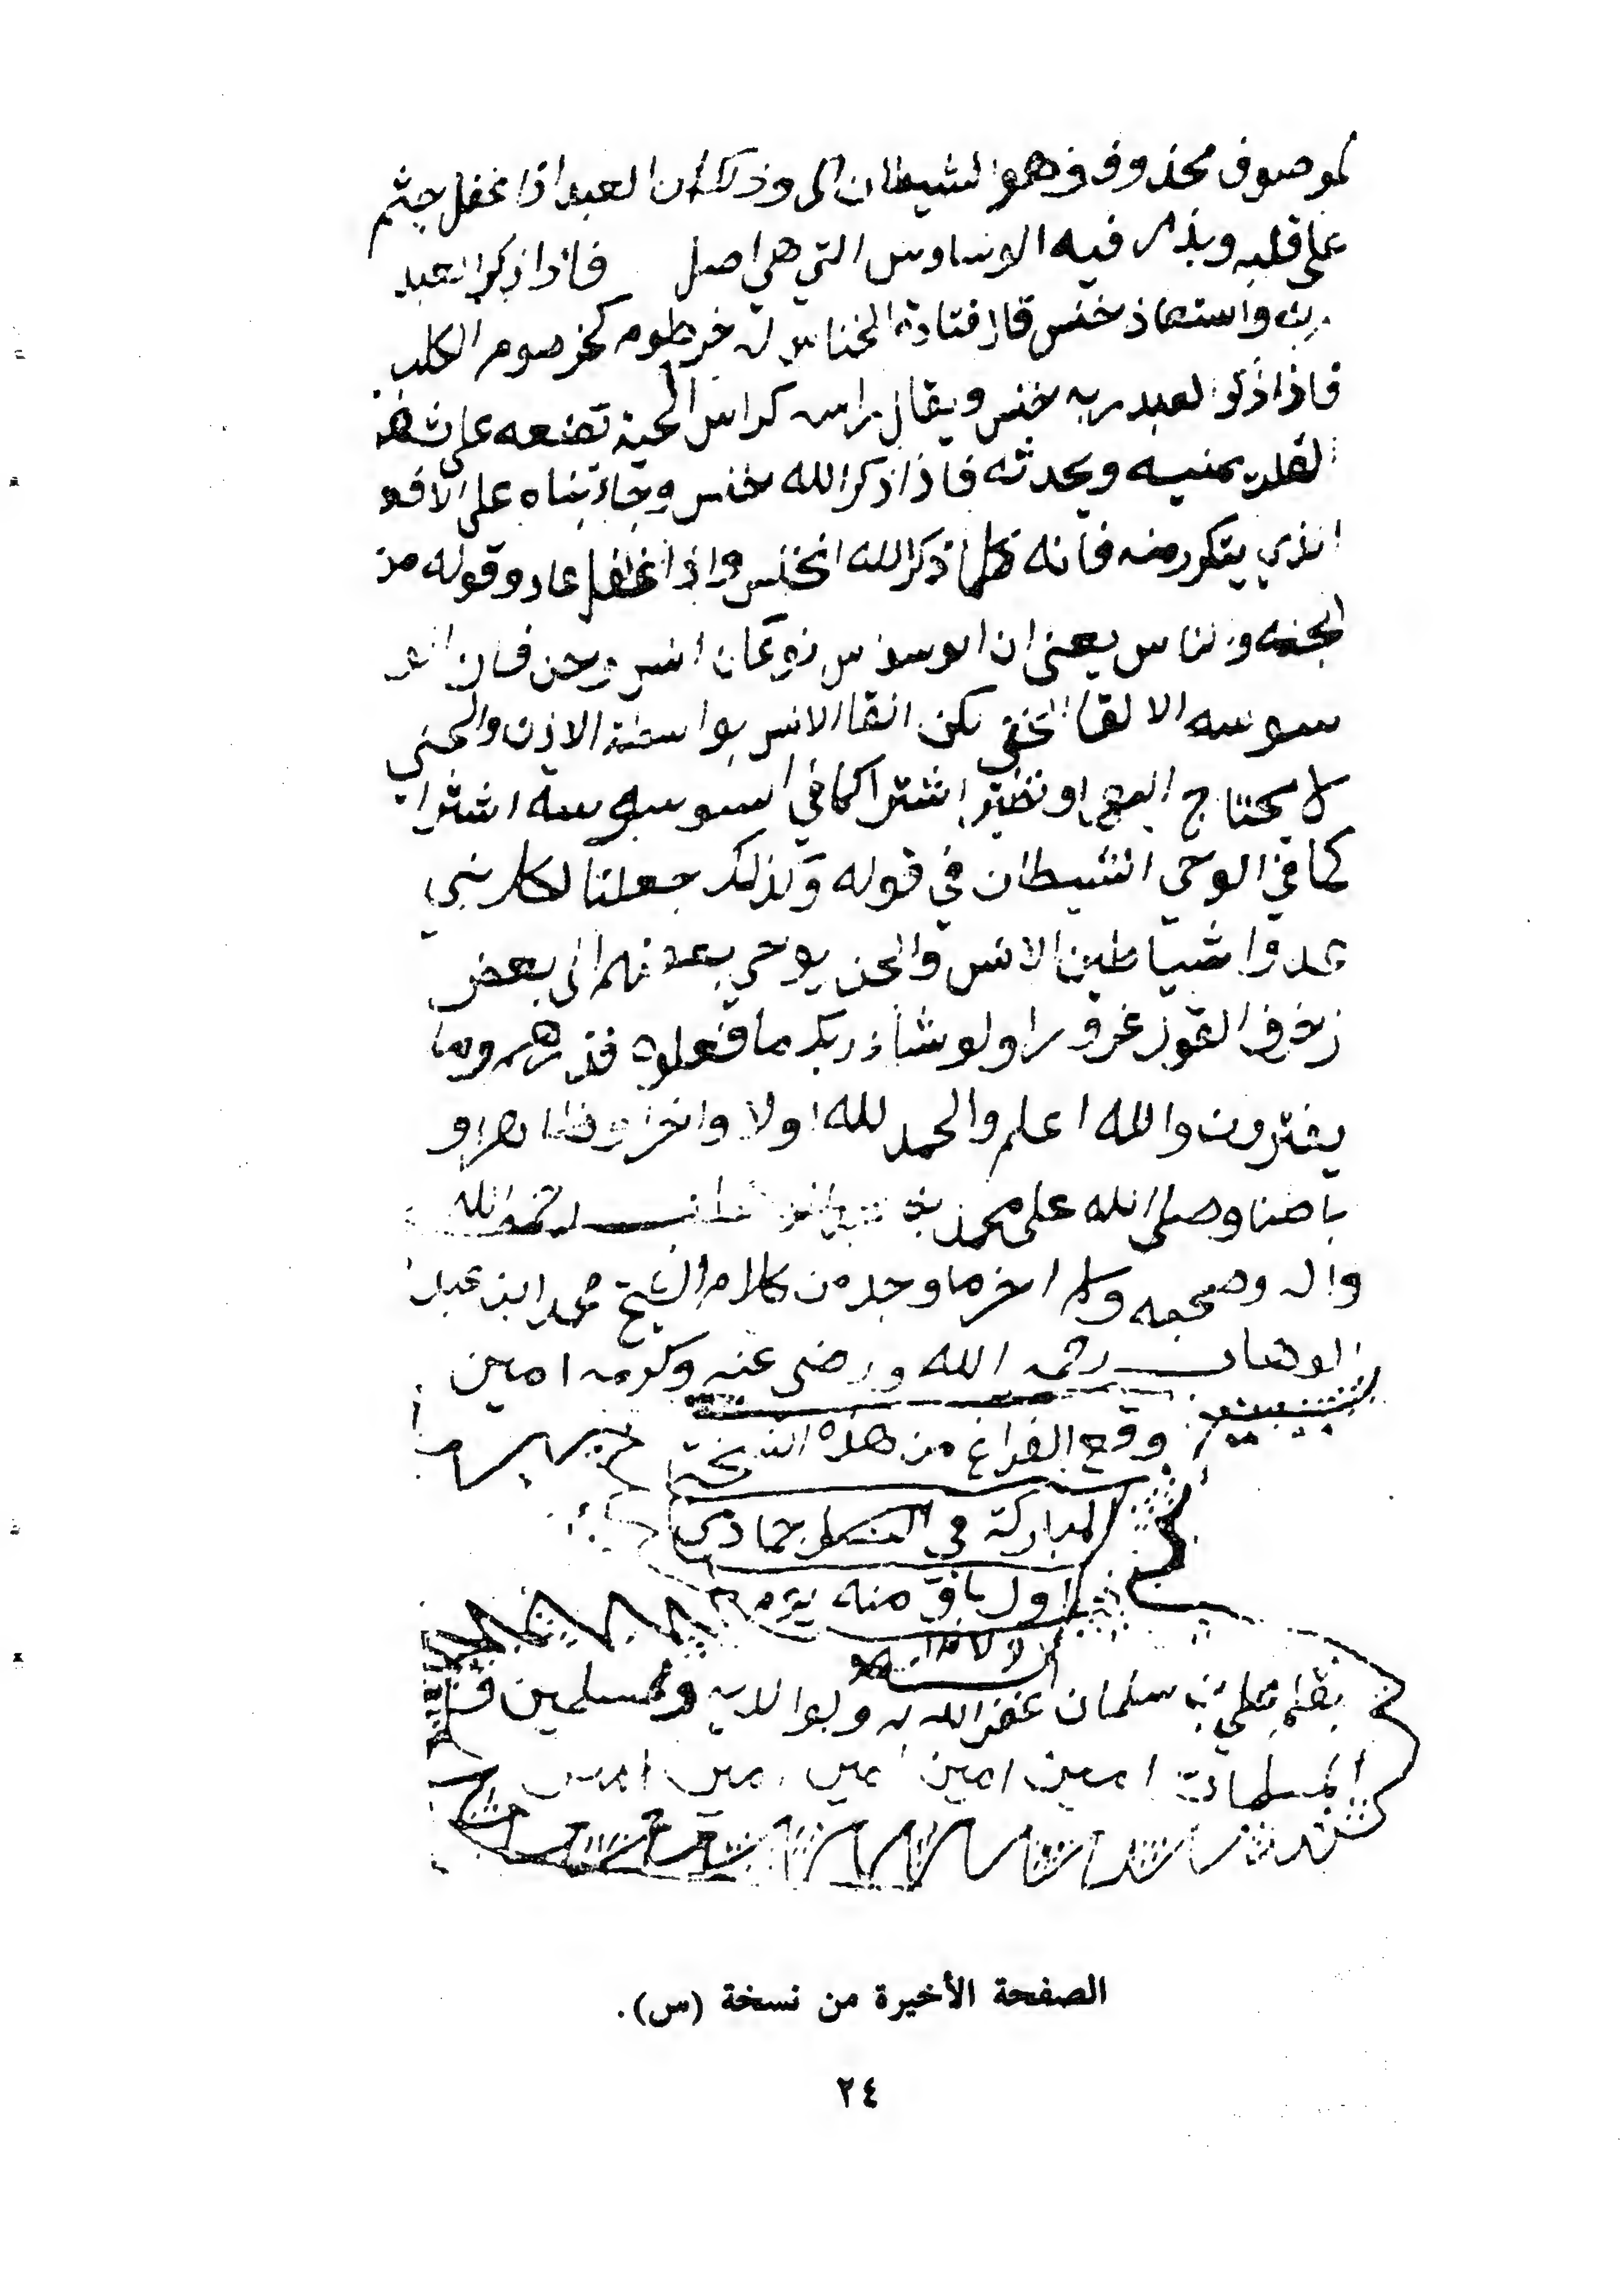 لموصوف محذوف وهو الشيطان الى وذلك ان العبد اذا غفل جثم
على قلبه وبذر فيه الوساوس التي هي اصل فاذا ذكر العبد
ربه واستعاذ خنس قال قتادة الخناس له خرطوم كخرصوم الكلب
فاذا ذكر العبد ربه خنس ويقال راسه كراس الحية تضعه على
القلب يمنيه ويحدثه فاذا ذكر الله خنس وجاء بناه على
الذي يتكرر منه فانه كلما ذكر الله انخنس واذا غفل عاد وقوله من
الجنه والناس يعني ان الوسواس نوعان انس وجن فان
سوسه الالقا الخفي لكن القا الانس بواسطة الاذن والجني
لا يحتاج اليها ونظير اشتراكها في الوسوسة اشترا
كها في الوحي الشيطان في قوله وكذلك جعلنا لكل نبي
عدوا شياطين الانس والجن يوحي بعضهم الى بعض
زخرف القول غرورا ولو شاء ربك ما فعلوه فذرهم وما
يفترون والله اعلم والحمد لله اولا واخرا وظاهرا و
باطنا وصلى الله على محمد
واله وصحبه وسلم اخر ما وجد من كلام الشيخ محمد ابن عبد
الوهاب رحمه الله ورضي عنه وكرمه امين
وقع الفراغ من هذه النسخة
المباركة في جمادى
اول باق منه يوم
بقلم علي بن سلمان غفر الله له ولوالديه والمسلمين
المسلمات امين امين امين امين امين
الصفحة الأخيرة من نسخة (س).
٢٤